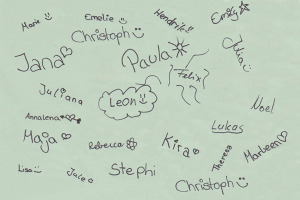 Marie
Emelie
Hendrik!!
Emily
Christoph
Jana
Paula
Julia
Felix
Juliana
Leon
Noel
Annalena
Lukas
Maja
Rebecca
Kira
Theresa
Marleen
Lisa
Jule
Stephi
Christoph